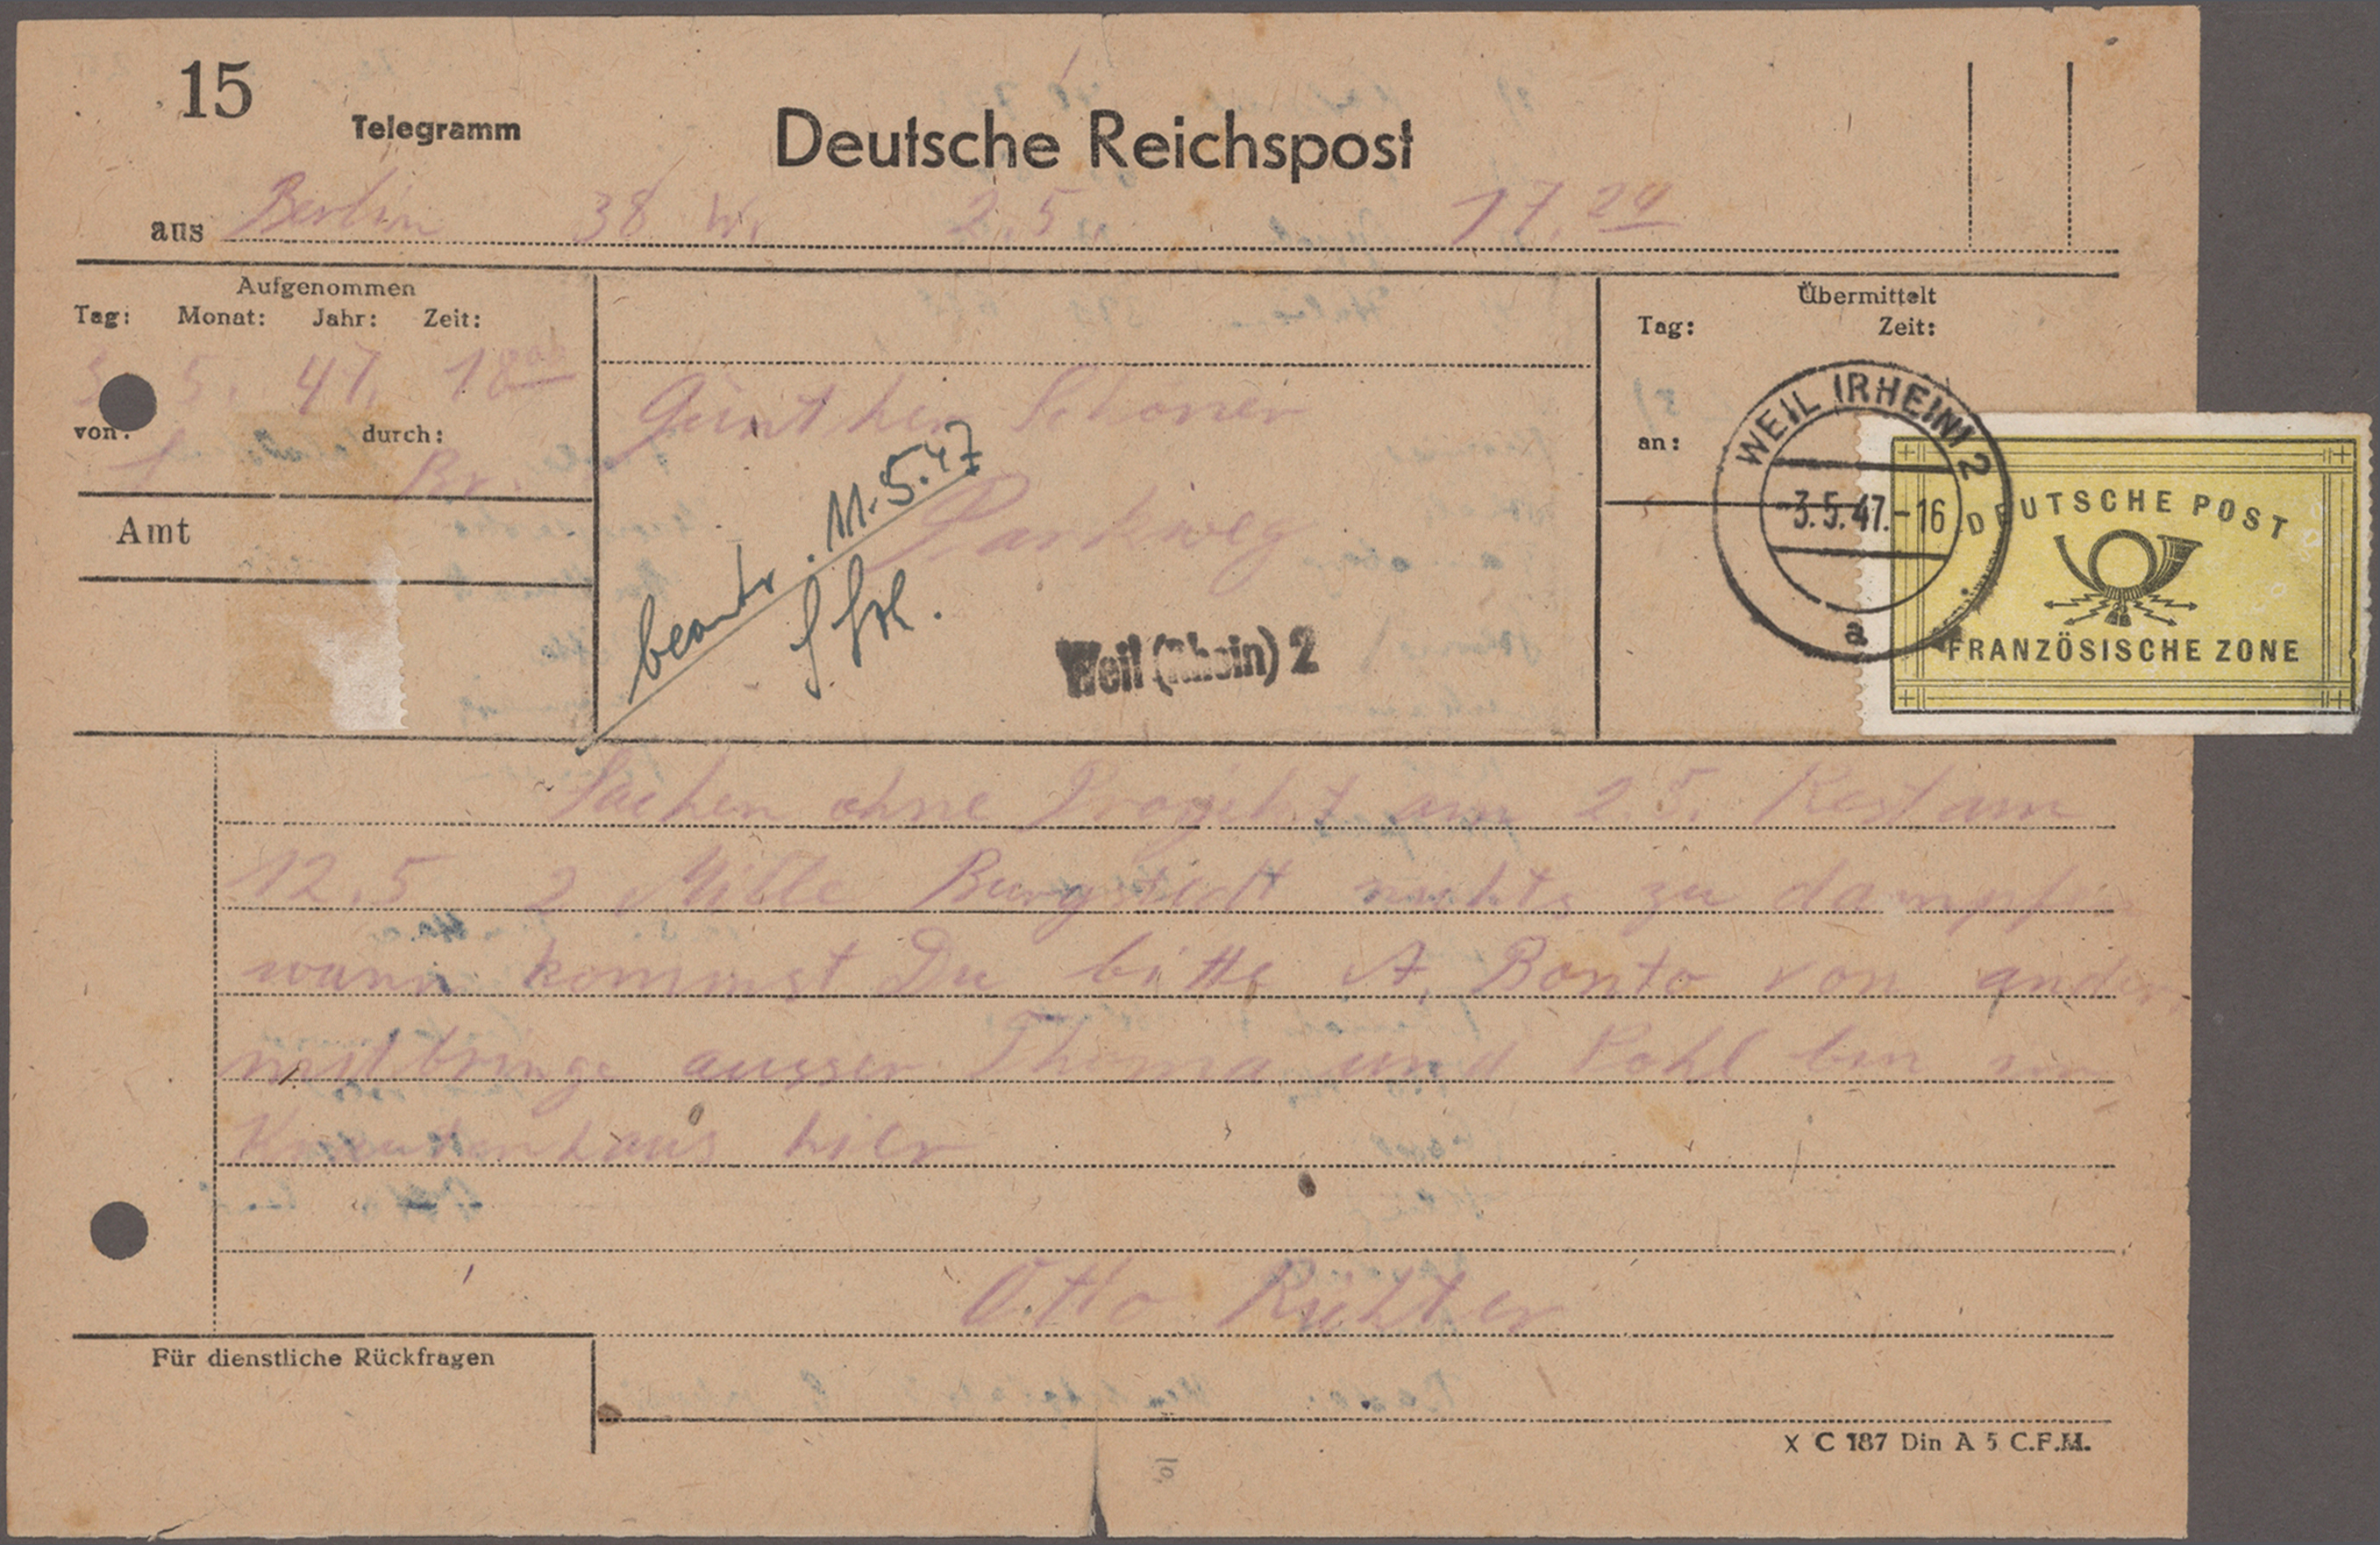 15
Telegramm
Deutsche Reichspost
aus Berlin 38 W. 2.5. 17.24
Aufgenommen
Tag: Monat: Jahr: Zeit:
5. 47. 18
von: durch:
Br.
Amt
Günther Schöner
Parkweg
beantw. 11.5.47
Weil (Rhein) 2
Übermittelt
Tag: Zeit:
an:
WEIL (RHEIN) 2
-3.5.47.-16
a
DEUTSCHE POST
FRANZÖSISCHE ZONE
Sachen ohne Projekt am 2.5. Rest am
12.5 2 Mille Burgstedt nichts zu dampfen
wann kommst Du bitte A. Bonto von andern
mitbringe ausser Thoma und Pohl bin im
Krankenhaus hier
Otto Richter
Für dienstliche Rückfragen
X C 187 Din A 5 C.F.M.